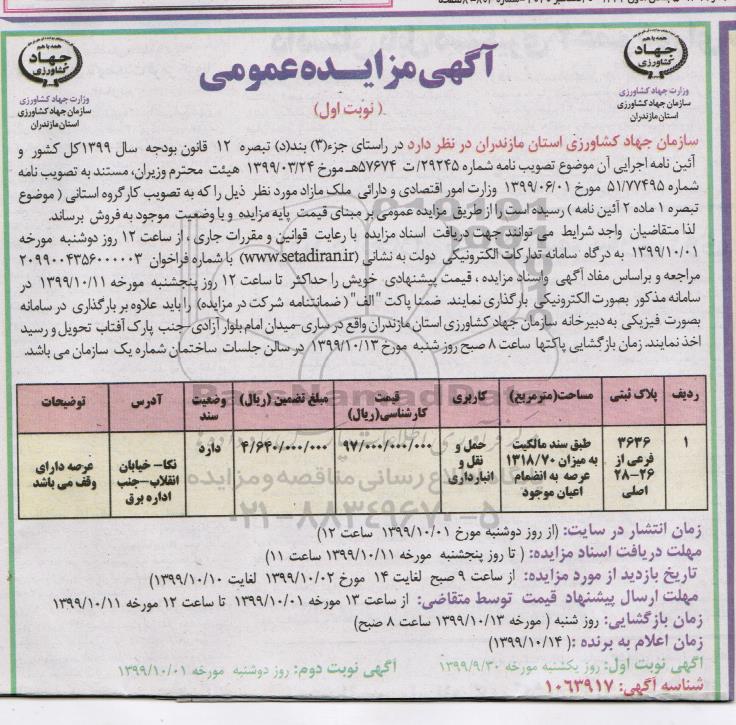 همه با هم
جهاد
کشاورزی
وزارت جهاد کشاورزی
سازمان جهاد کشاورزی
استان مازندران
آگهی مزایده عمومی
( نوبت اول)
همه با هم
جهاد
کشاورزی
وزارت جهاد کشاورزی
سازمان جهاد کشاورزی
استان مازندران
سازمان جهاد کشاورزی استان مازندران در نظر دارد در راستای جزء(۳) بند(د) تبصره ۱۲ قانون بودجه سال ۱۳۹۹کل کشور و
آئین نامه اجرایی آن موضوع تصویب نامه شماره ۲۹۲۴۵/ ت ۵۷۶۷۴هـ مورخ ۱۳۹۹/۰۳/۲۴ هیئت محترم وزیران، مستند به تصویب نامه
شماره ۵۱/۷۷۴۹۵ مورخ ۱۳۹۹/۰۶/۰۱ وزارت امور اقتصادی و دارائی ملک مازاد مورد نظر ذیل را که به تصویب کارگروه استانی ( موضوع
تبصره ۱ ماده ۲ آئین نامه ) رسیده است را از طریق مزایده عمومی بر مبنای قیمت پایه مزایده و با وضعیت موجود به فروش برساند.
لذا متقاضیان واجد شرایط می توانند جهت دریافت اسناد مزایده با رعایت قوانین و مقررات جاری ، از ساعت ۱۲ روز دوشنبه مورخه
۱۳۹۹/۱۰/۰۱ به درگاه سامانه تدارکات الکترونیکی دولت به نشانی (www.setadiran.ir) با شماره فراخوان ۲۰۹۹۰۰۴۳۵۶۰۰۰۰۰۳
مراجعه و براساس مفاد آگهی واسناد مزایده ، قیمت پیشنهادی خویش را حداکثر تا ساعت ۱۲ روز پنجشنبه مورخه ۱۳۹۹/۱۰/۱۱ در
سامانه مذکور بصورت الکترونیکی بارگذاری نمایند. ضمنا پاکت "الف" ( ضمانتنامه شرکت در مزایده) را باید علاوه بر بارگذاری در سامانه
بصورت فیزیکی به دبیرخانه سازمان جهاد کشاورزی استان مازندران واقع در ساری-میدان امام بلوار آزادی- جنب پارک آفتاب تحویل و رسید
اخذ نمایند. زمان بازگشایی پاکتها ساعت ۸ صبح روز شنبه مورخ ۱۳۹۹/۱۰/۱۳ در سالن جلسات ساختمان شماره یک سازمان می باشد.
ردیف پلاک ثبتی مساحت(مترمربع) کاربری قیمت کارشناسی(ریال) مبلغ تضمین (ریال) وضعیت سند آدرس توضیحات
۱ ۳۶۳۶ فرعی از ۲۶-۲۸ اصلی طبق سند مالکیت به میزان ۱۳۱۸/۷۰ عرصه به انضمام اعیان موجود حمل و نقل و انبارداری ۹۷/۰۰۰/۰۰۰/۰۰۰ ۴/۶۴۰/۰۰۰/۰۰۰ دارد نکا- خیابان انقلاب-جنب اداره برق عرصه دارای وقف می باشد
زمان انتشار در سایت: (از روز دوشنبه مورخ ۱۳۹۹/۱۰/۰۱ ساعت ۱۲)
مهلت دریافت اسناد مزایده: ( تا روز پنجشنبه مورخه ۱۳۹۹/۱۰/۱۱ ساعت ۱۱)
تاریخ بازدید از مورد مزایده: از ساعت ۹ صبح لغایت ۱۴ مورخ ۱۳۹۹/۱۰/۰۲ لغایت ۱۳۹۹/۱۰/۱۰)
مهلت ارسال پیشنهاد قیمت توسط متقاضی: از ساعت ۱۳ مورخه ۱۳۹۹/۱۰/۰۱ تا ساعت ۱۲ مورخه ۱۳۹۹/۱۰/۱۱
زمان بازگشایی: روز شنبه ( مورخه ۱۳۹۹/۱۰/۱۳ ساعت ۸ صبح)
زمان اعلام به برنده :( ۱۳۹۹/۱۰/۱۴)
آگهی نوبت اول: روز یکشنبه مورخه ۱۳۹۹/۹/۳۰ آگهی نوبت دوم: روز دوشنبه مورخه ۱۳۹۹/۱۰/۰۱
شناسه آگهی: ۱۰۶۳۹۱۷
ParsNamadData
۰۲۱-۸۸۳۴۹۶۷۰-۵